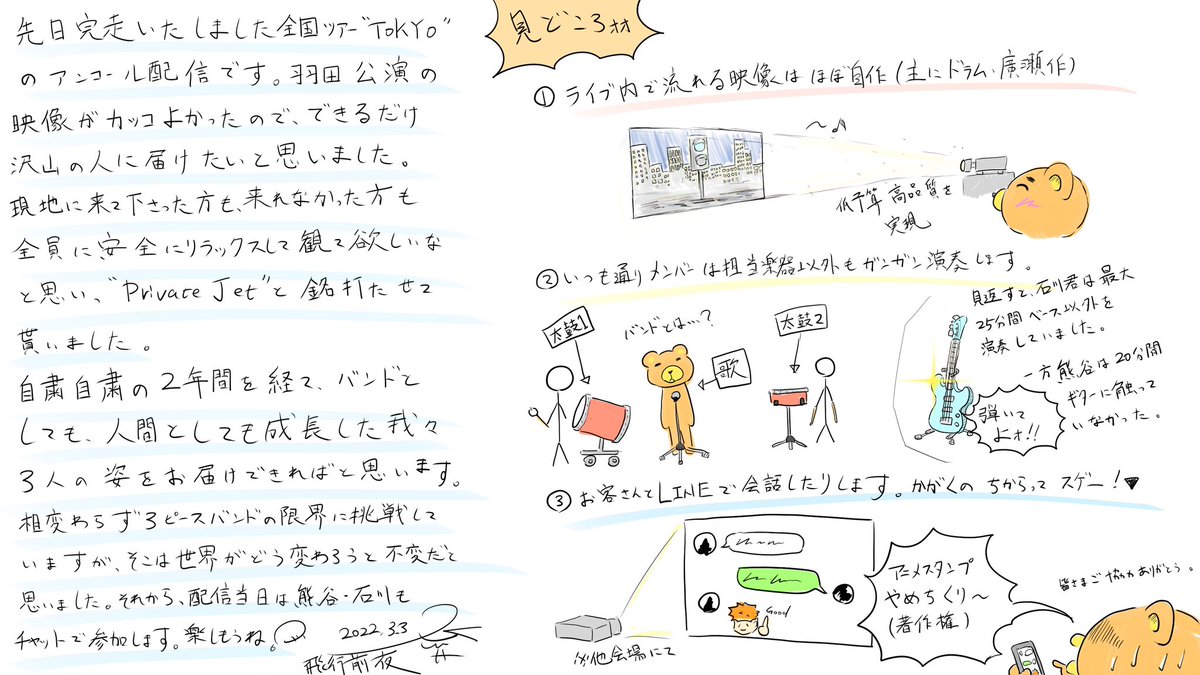 先日完走いたしました全国ツアー"TOKYO"
のアンコール配信です。羽田公演の
映像がカッコよかったので、できるだけ
沢山の人に届けたいと思いました。
現地に来て下さった方も、来れなかった方も
全員に安全にリラックスして観て欲しいな
と思い、"Private Jet"と銘打たせて
貰いました。
自粛自粛の2年間を経て、バンドと
しても、人間としても成長した我々
3人の姿をお届けできればと思います。
相変わらず3ピースバンドの限界に挑戦して
いますが、そこは世界がどう変わろうと不変だと
思いました。それから、配信当日は熊谷・石川も
チャットで参加します。楽しもうね。
2022.3.3
飛行前夜
見どころォォ
① ライブ内で流れる映像は ほぼ自作(主にドラム・廣瀬作)
〜♪
低予算 高品質を
実現
② いつも通りメンバーは担当楽器以外もガンガン演奏します。
太鼓1
バンドとは…?
歌
太鼓2
見返すと、石川君は最大
25分間ベース以外を
演奏していました。
一方熊谷は20分間
ギターに触って
いなかった。
弾いて
よォ!!
③ お客さんとLINEで会話したりします。かがくの ちからって スゲー!▼
Good
※他会場にて
アニメスタンプ
やめちくり〜
(著作権)
皆さまご協力ありがとう。